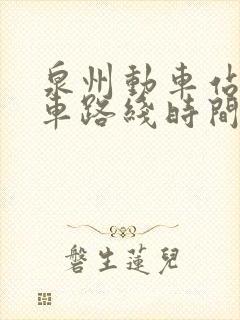 泉州動車佔
車路綫時間
磐生蓮兒